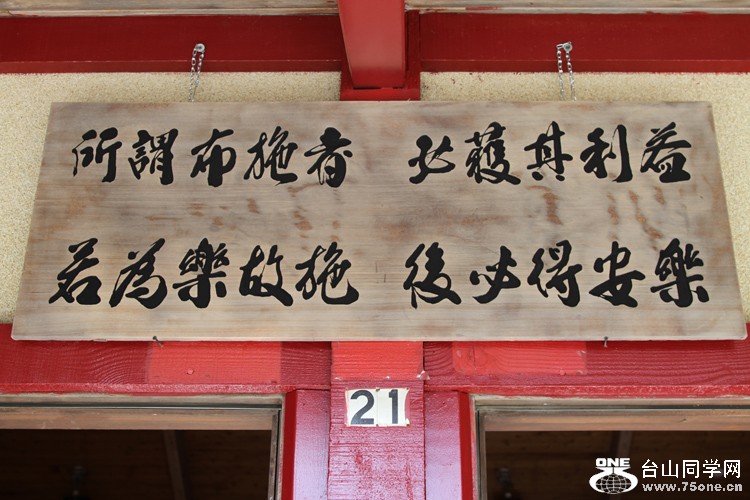 所謂布施者 必獲其利益
若為樂故施 後必得安樂
21
ONE 台山同学网
www.75one.cn